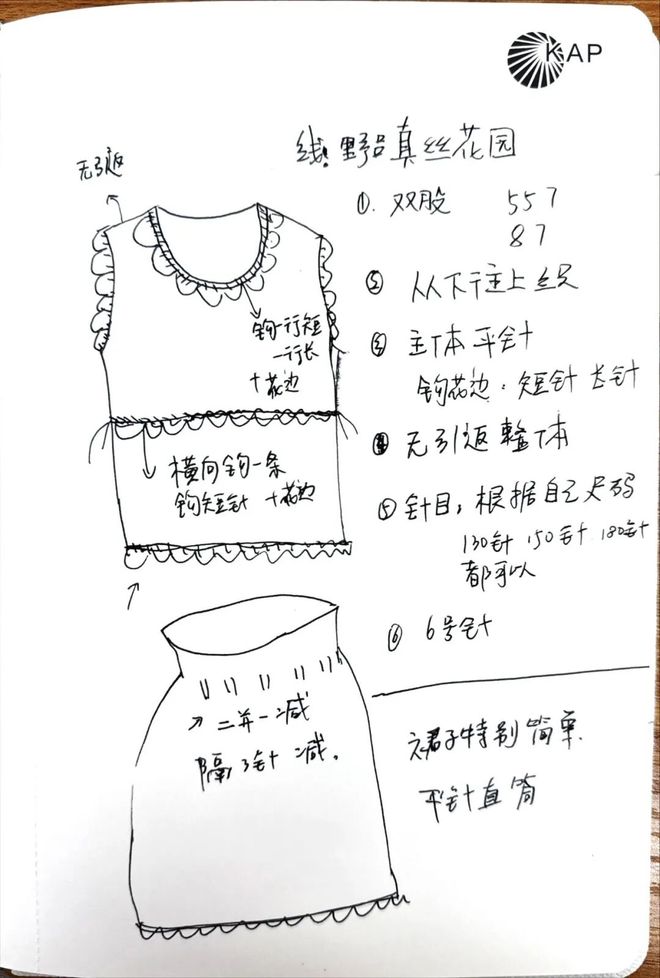 KAP
线：野吕真丝花园
无引返
①. 双股 557
87
② 从下往上织
③ 主体平针
钩花边．短针 长针
④ 无引返整体
⑤ 针目，根据自己尺码
130针 150针 180针
都可以
⑥ 6号针
钩一行短
一行长
+花边
横向钩一条
钩短针 +花边
二并一减
隔3针减。
裙子特别简单.
平针直筒